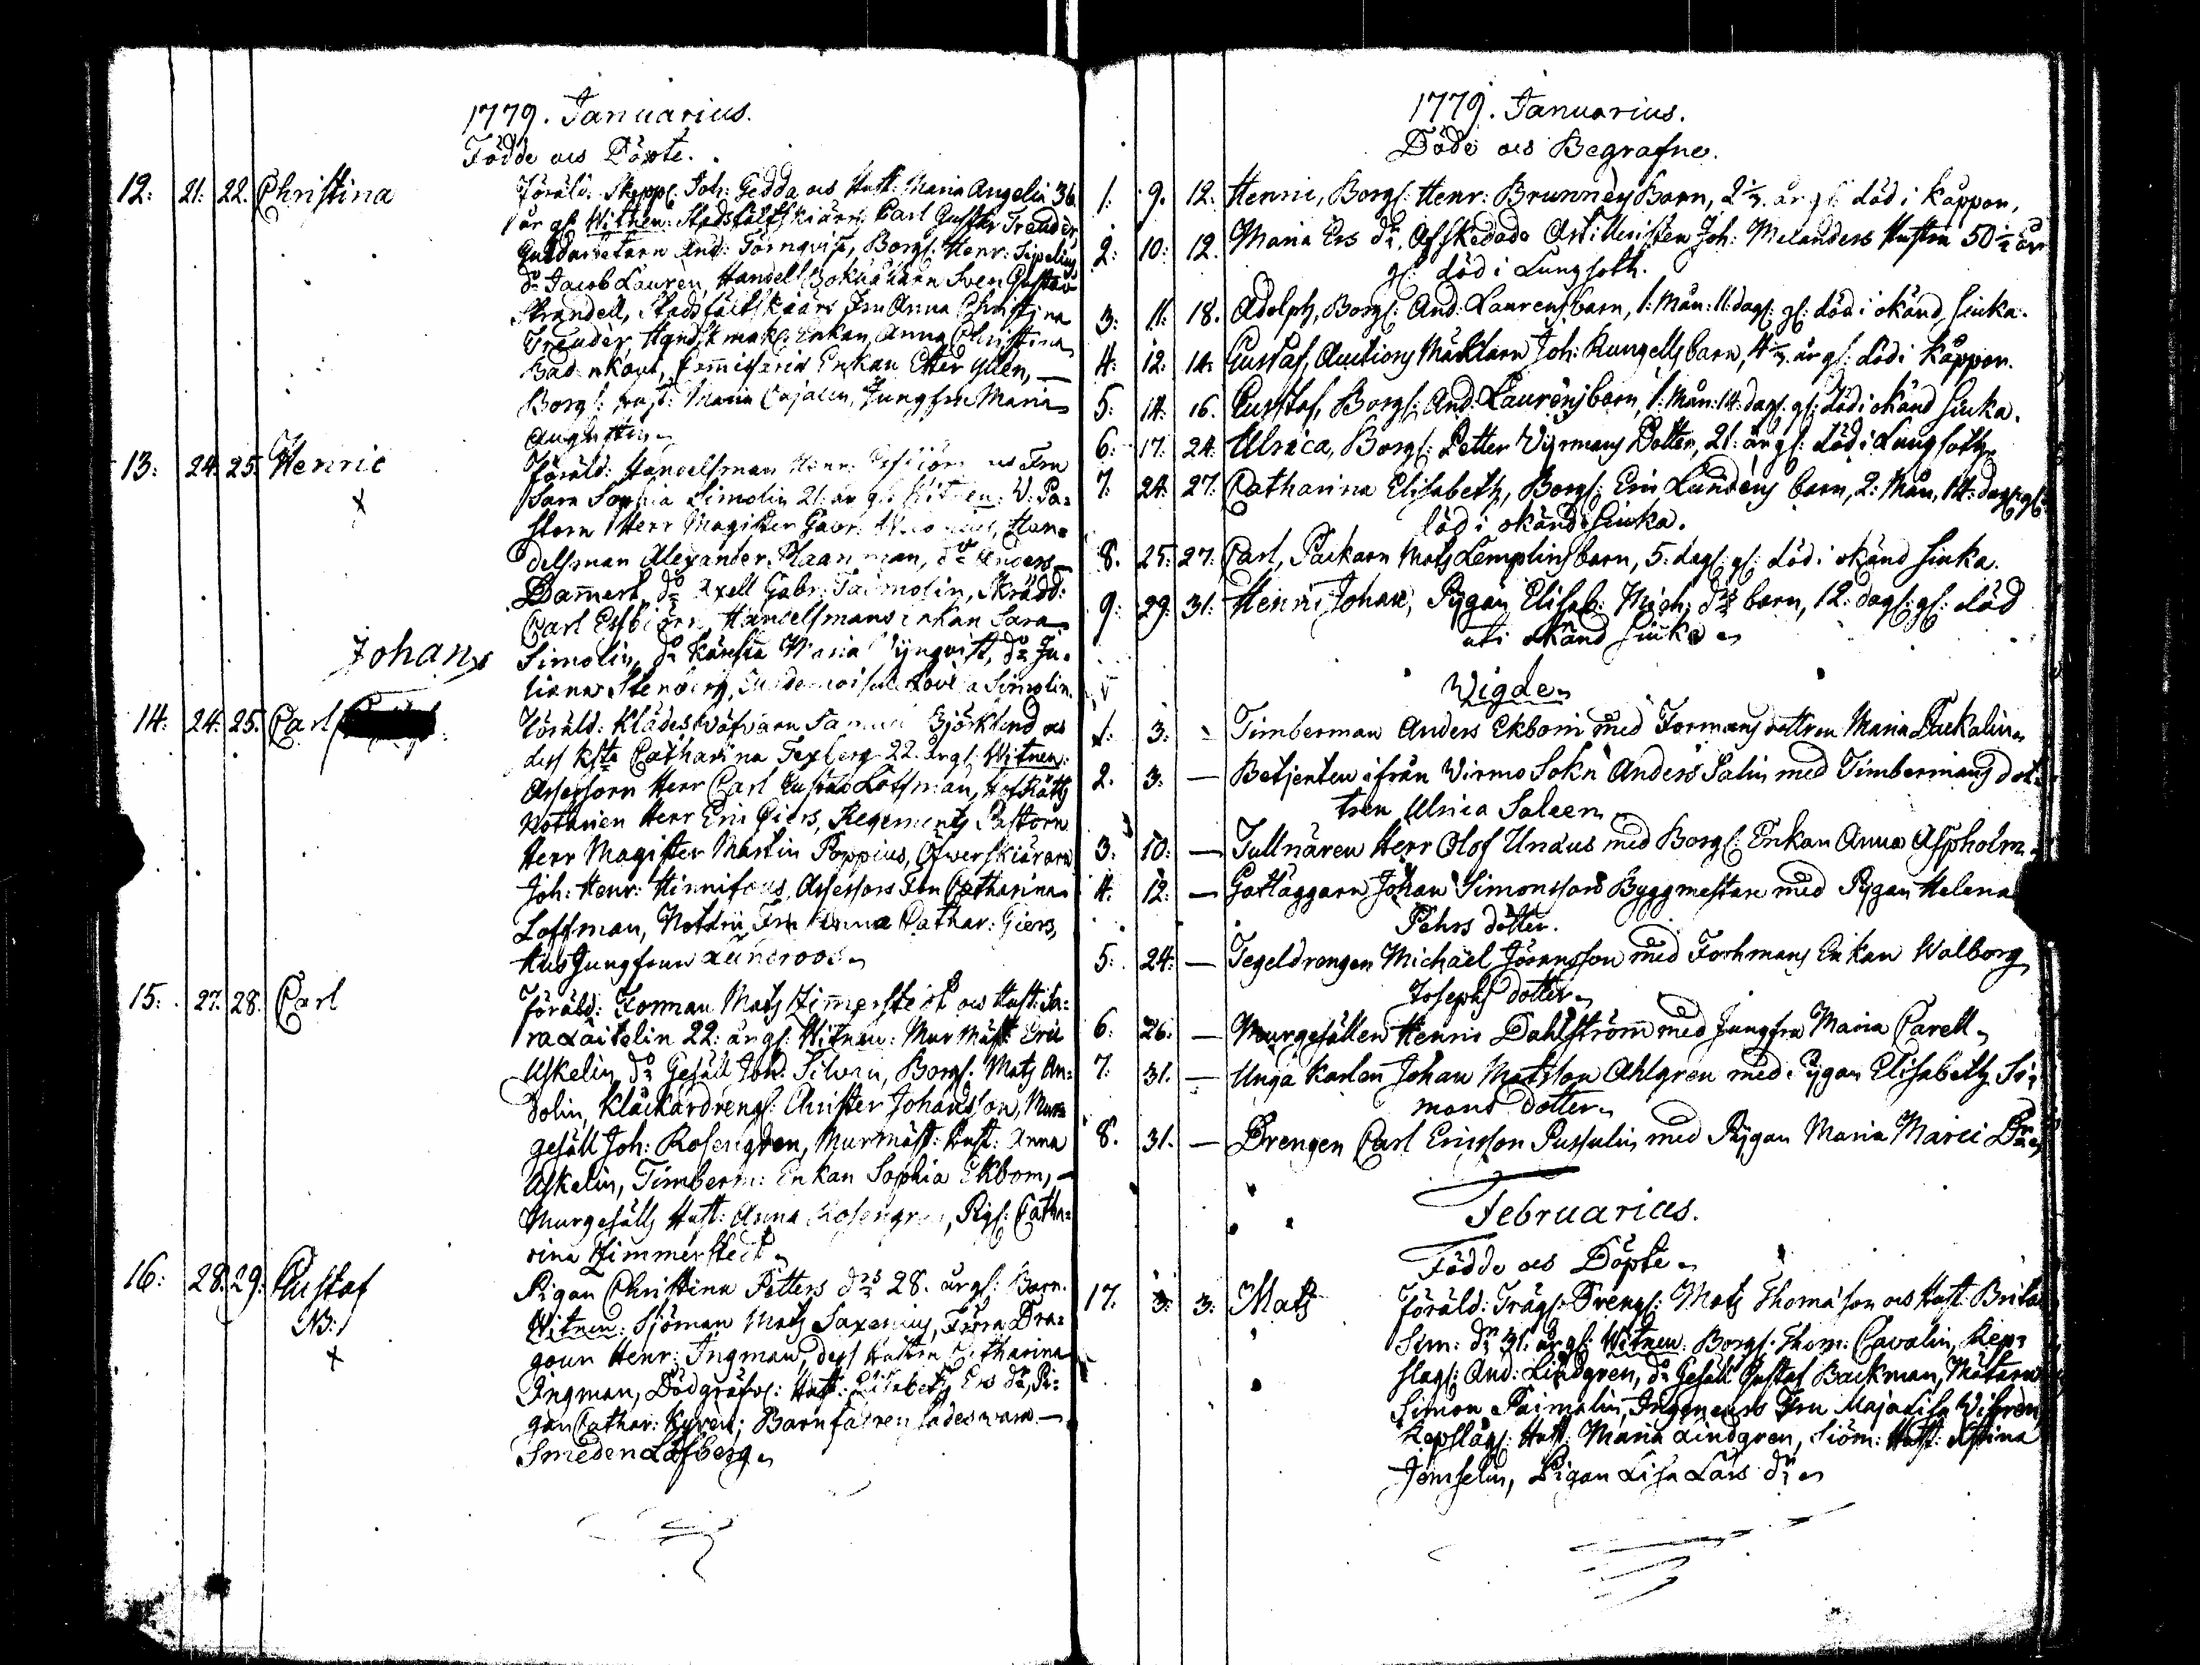 1779. Januarius.
Födde ock Döpte.
12: 21. 22. Christina
Föräld: Skepp: Joh: Gedda ock Hust: Maria Angelin 36
år gl. Witnen: Stadsfältskiärn: Carl Gustav Treuder
Gulldarbetarn And: Törnqvist, Borgs: Henr: Sipelius
do Jacob Lauren, Handels Bokhållarn Sven Gustav
Strandell, Stadsfältskiärs Fru Anna Christina
Treuder, Handskmak: Enkan Anna Christina
Enkan
Borgs: Hust: Maria Cajalen, Jungfru Maria
Augustin
13: 24. 25. Henric
x
Föräld: Handelsman Henr: ock Fru
Sara Sophia Simolin 21: år gl: Witnen: V: Pa=
storn Herr Magister Gabr: Han=
delsman Alexander Haanman, do Anders
Dammert, do Axell Gabr: Taimolin, Skrädd:
Carl Essbiörn, Handelsmans enkan Sara
Johan
Simolin, do käresta Maria Wynqvist, do Ju=
liana Stenberg, Mademoiselle Lovisa Simolin.
14: 24. 25. Carl
Föräld: Klädesväfvarn Samuel Björklund ock
dess Ksta Catharina Texberg 22. år gl: Witnen:
Assessorn Herr Carl Gustav Loffman, Hofrätts
Notarien Herr Eric Giers, Regements Pastorn
Herr Magister Martin Poppius, Öfwerskiärarn
Joh: Henr: Hinnifous, Assessors Fru Catharina
Loffman, Notarii Fru Anna Cathar: Giers,
Husjungfrun Lundroos
15: 27. 28. Carl
Föräld: Forman Mats Zimmerstedt ock Hust: Sa=
ra Laitelin 22: år gl: Witnen: Murmäst: Eric
Askelin, do Gesäll Joh: Silvan, Borgs: Mats An=
dolin, Kläckardrengs: Christer Johansson, Mur=
gesäll Joh: Rosengren, Murmäst: Hust: Anna
Askelin, Timberm: Enkan Sophia Ekbom,
Murgesälls Hust: Anna Rosengren, Pig: Catha=
rina Zimmerstedt
16: 28. 29. Gustaf
NB:
x
Pigan Christina Petters drs 28. år gl: Barn.
Witnen: Sjöman Mats Saxenius, Förra Dra=
goun Henr: Ingman, dess Hustru Catharina
Ingman, Dödgräfvs: Hust: Elisabeth Ers dr, Pi=
gan Cathar: Kyren; Barnfadren sades wara
Smeden Löfberg
1779. Januarius.
Döde ock Begrafne.
1. 9. 12. Henric, Borgs: Henr: Brunneys Barn, 2½ år gl: död i kåppor.
2: 10: 12. Maria Ers dr, Afskedade Artilleristen Joh: Melanders Hustru 50½ år
gl: död i Lungsoth.
3: 11: 18. Adolph, Borgs: And: Laurens barn, 1: Mån: 11: dag: gl: död i okänd siuka.
4: 12: 14: Gustaf, Auctions Mäcklarn Joh: Kungells barn, 4½ år gl: död i kåppor.
5: 14: 16. Gustaf, Borgs: And: Laurens barn, 1: Mån: 14: dag: gl: död i okänd siuka.
6: 17: 24: Ulrica, Borgs: Petter Wirmans Dotter, 21: år gl: död i Lungsoth
7: 24: 27: Catharina Elisabeth, Borgs: Eric Lundens barn, 2: Mån, 14: dag: gl:
död i okänd siuka.
8. 25: 27: Carl, Packarn Mats Lemplins barn, 5. dag: gl: död i okänd siuka.
9: 29: 31: Henric Johan, Pigan Elisab: Mich: drs barn, 12: dag: gl: död
uti okänd siuka
Wigde
1: 3: Timberman Anders Ekbom med Formans dottren Maria Packalin
2. 3. — Betjenten ifrån Virmo Sokn Anders Salin med Timbermans dot=
tren Ulrica Saleen
3: 10: — Tullnären Herr Olof Undus med Borgs: Enkan Anna Aspholm
4. 12: — Gatläggarn Johan Simonsson Byggmestare med Pigan Helena
Pehrs dotter.
5: 24: — Tegeldrengen Michael Jöransson med Forhmans Enkan Walborg
Josephs dotter
6: 26. — Murgesällen Henric Dahlström med Jungfru Maria Carell
7: 31. — Unga Karlen Johan Matsson Ahlgren med Pigan Elisabeth Si=
mons dotter
8. 31. — Drengen Carl Ericsson Pussulin med Pigan Maria Marci Dr
Februarius.
Födde ock Döpte
17. 3: 3: Mats
Föräld: Trägs: Drengs: Mats Thomasson ock Hust: Brita
Sim: dr 31: år gl: Witnen: Borgs: Thom: Cavalin, Rep=
slags: And: Lindgren, do Gesäll Gustaf Backman, Mätarn
Simon Paimalin, Ingeneurs Fru Maja Lisa Widren,
Repslags: Hust: Maria Lindgren, Siöm: Hust: Stina
Jemselin, Pigan Lisa Lars dr